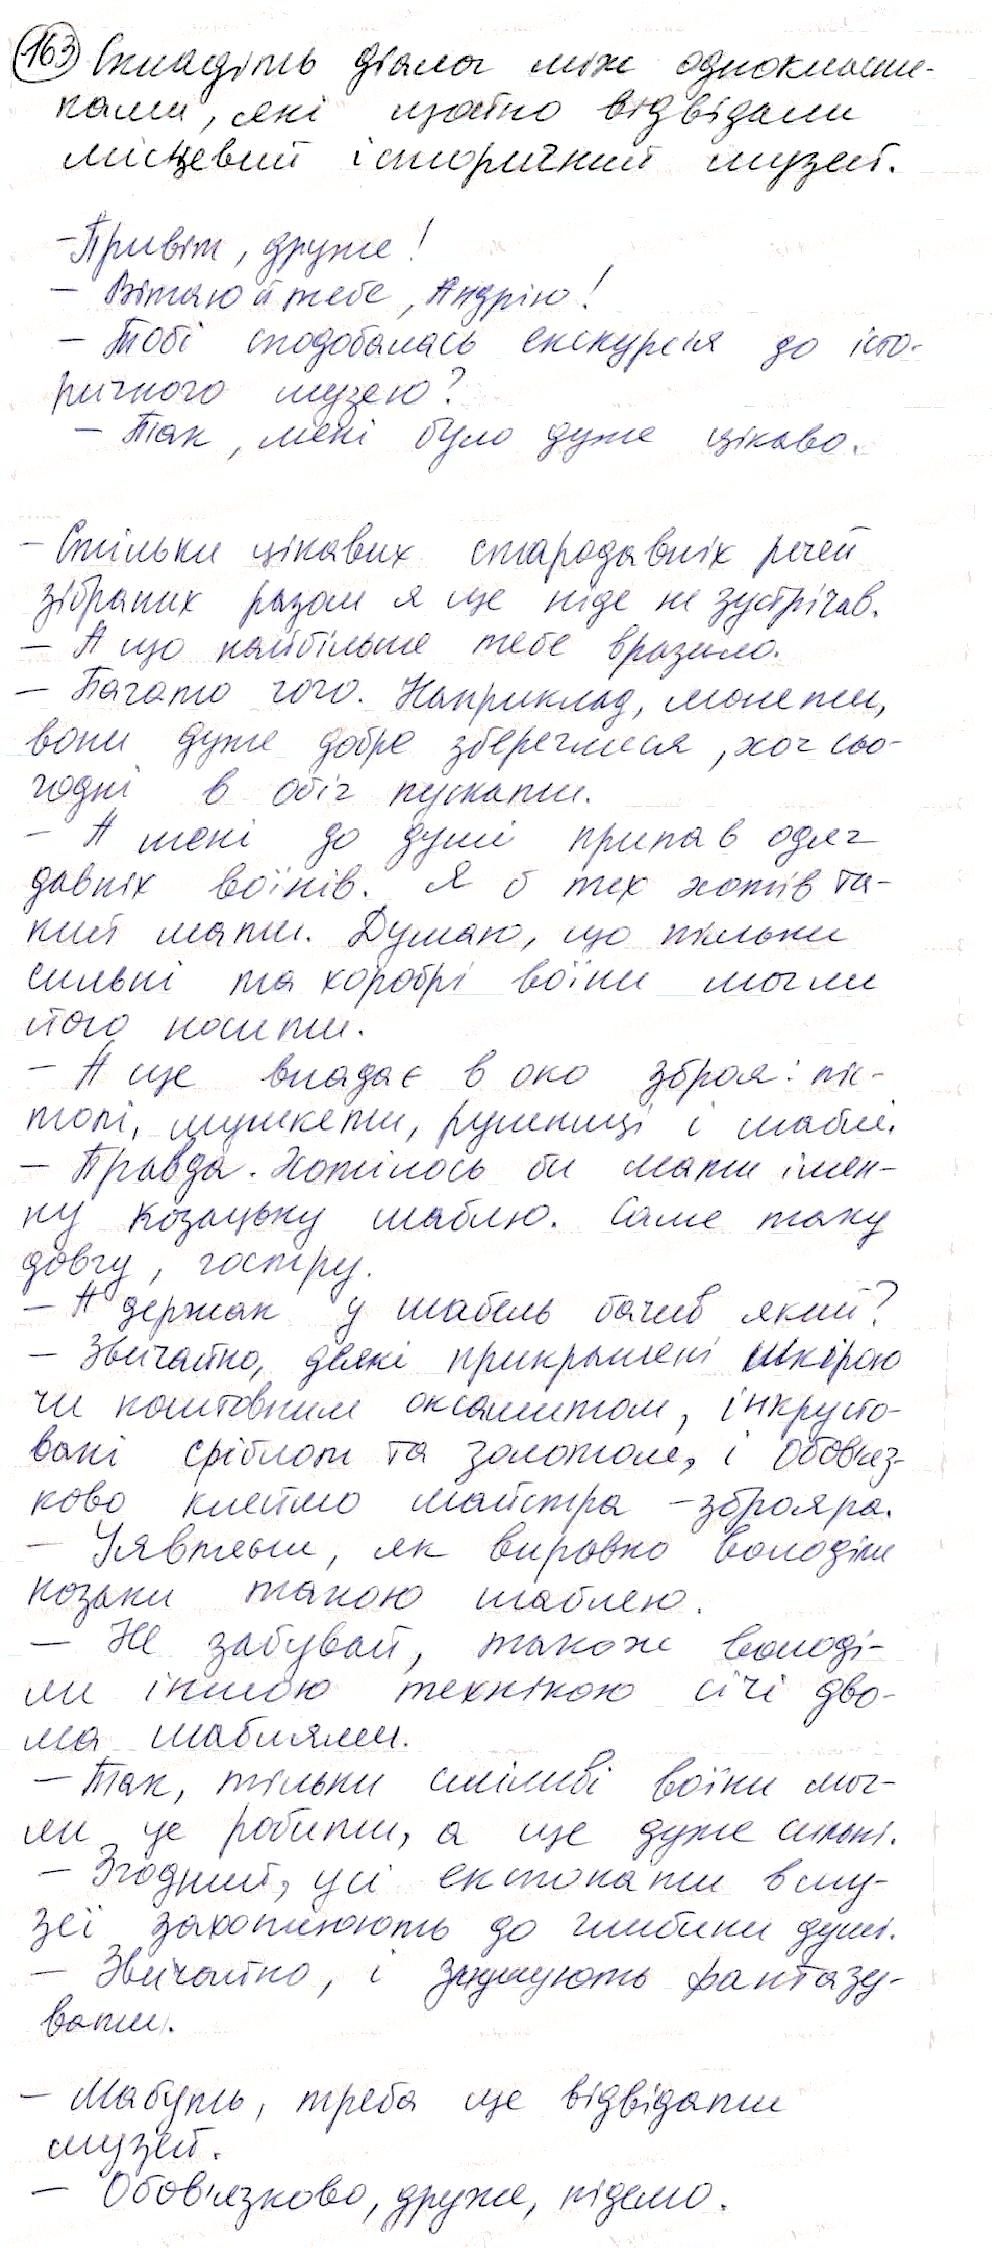 163 Складіть діалог між однокласни-
ками, які щойно відвідали
місцевий історичний музей.
- Привіт, друже!
- Вітаю й тебе, Андрію!
- Тобі сподобалась екскурсія до істо-
ричного музею?
- Так, мені було дуже цікаво.
- Стільки цікавих стародавніх речей
зібраних разом я ще ніде не зустрічав.
- А що найбільше тебе вразило.
- Багато чого. Наприклад, монети,
вони дуже добре збереглися, хоч сьо-
годні в обіг пускати.
- А мені до душі припав одяг
давніх воїнів. Я б теж хотів та-
кий мати. Думаю, що тільки
сильні та хоробрі воїни могли
його носити.
- А ще впадає в око зброя: піс-
толі, мушкети, рушниці і шаблі.
- Правда. Хотілось би мати імен-
ну козацьку шаблю. Саме таку
довгу, гостру.
- А держак у шабель бачив який?
- Звичайно, деякі прикрашені шкірою
чи коштовним оксамитом, інкрусто-
вані сріблом та золотом, і обов'яз-
ково клеймо майстра - зброяра.
- Уявляєш, як вправно володіли
козаки такою шаблею.
- Не забувай, також володі-
ли іншою технікою січі дво-
ма шаблями.
- Так, тільки сміливі воїни мог-
ли це робити, а ще дуже сильні.
- Згодний, усі експонати в му-
зеї захоплюють до глибини душі.
- Звичайно, і змушують фантазу-
вати.
- Мабуть, треба ще відвідати
музей.
- Обов'язково, друже, підемо.